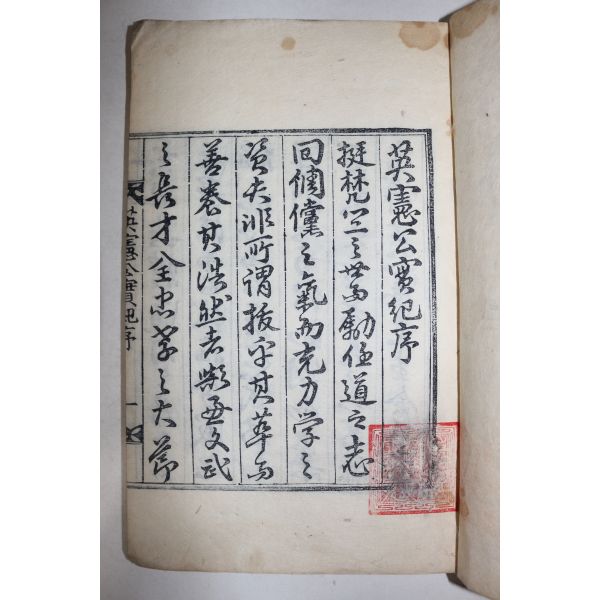 英憲公實紀序
挺梵㒺之世而勵任道之志
回倜儻之氣而克力学之
資夫非所謂拔乎其萃而
善養其浩然者歟兼文武
之長才全忠孝之大節
英憲公實紀序
一